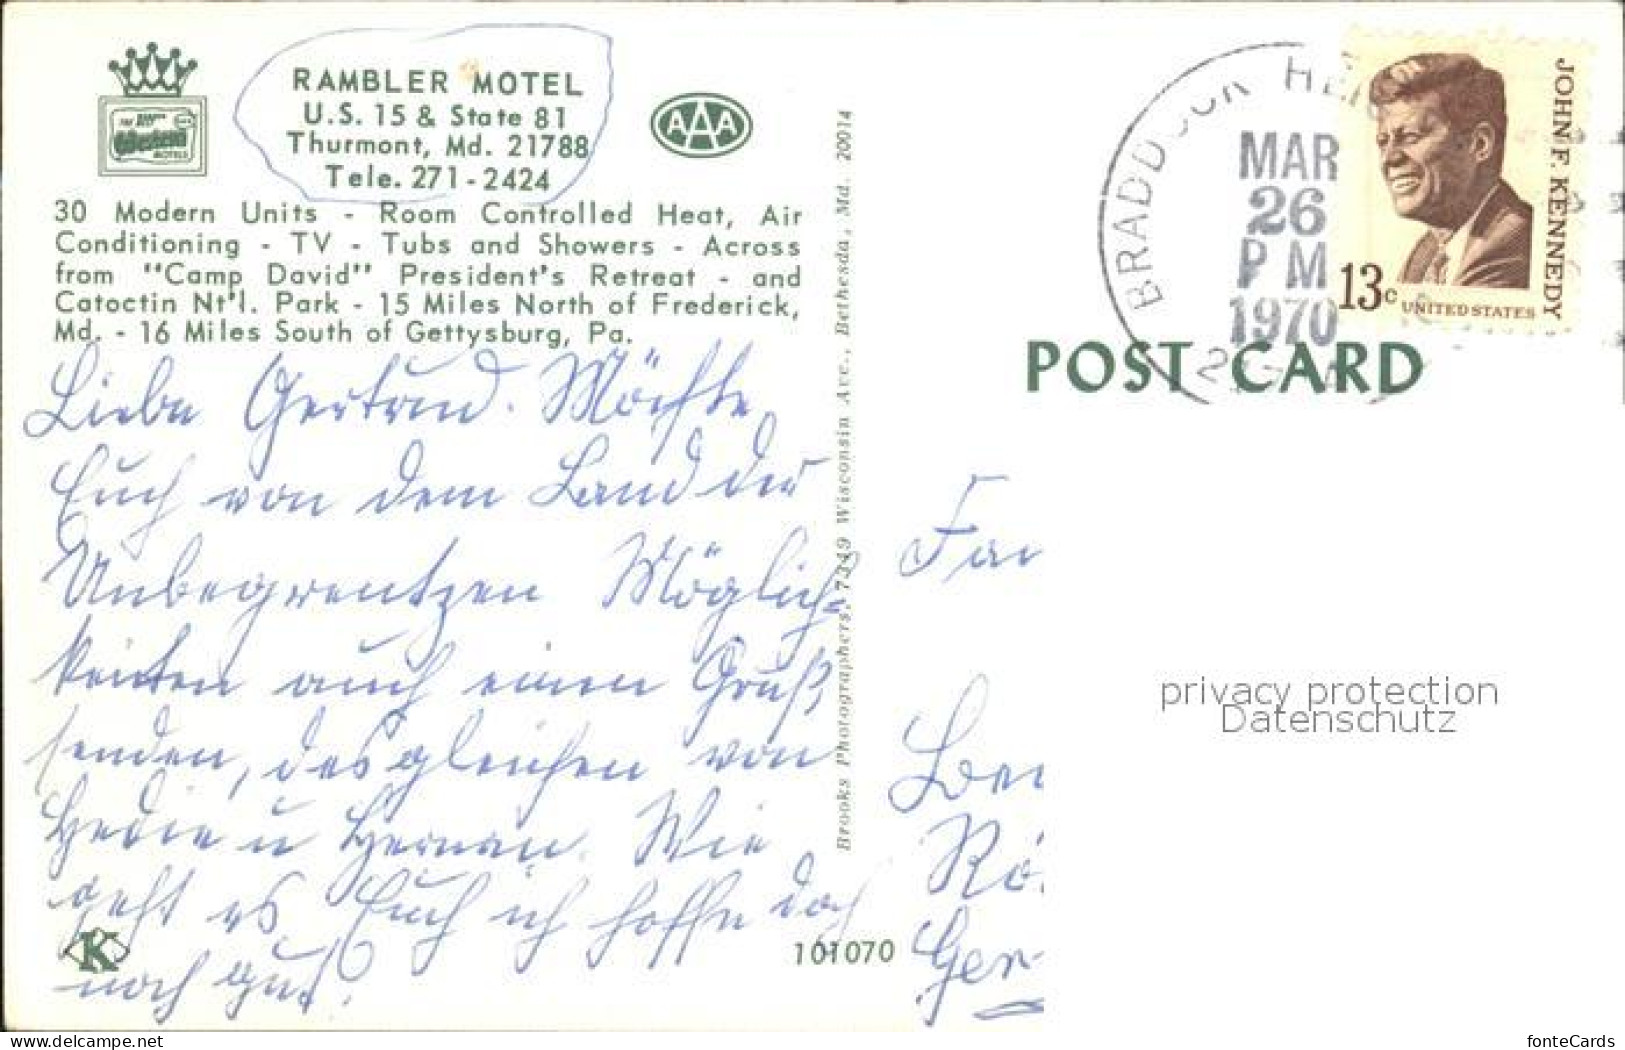 RAMBLER MOTEL
U.S. 15 & State 81
Thurmont, Md. 21788
Tele. 271-2424
AAA
30 Modern Units - Room Controlled Heat, Air
Conditioning - TV - Tubs and Showers - Across
from "Camp David" President's Retreat - and
Catoctin Nt'l. Park - 15 Miles North of Frederick,
Md. - 16 Miles South of Gettysburg, Pa.
Liebe Gertrud. Möchte
Euch von dem Land der
Unbegrentzen Möglich=
keiten auch einen Gruß
senden, desgleichen von
Hedie u Herman. Wie
geht es Euch ich hoffe doch
noch gut.
K
101070
Brooks Photographers, 7349 Wisconsin Ave., Bethesda, Md. 20014
BRADDOCK HE
MAR
26
PM
1970
JOHN F. KENNEDY
13c UNITED STATES
POST CARD
Ger-
privacy protection
Datenschutz
www.delcampe.net
fonteCards